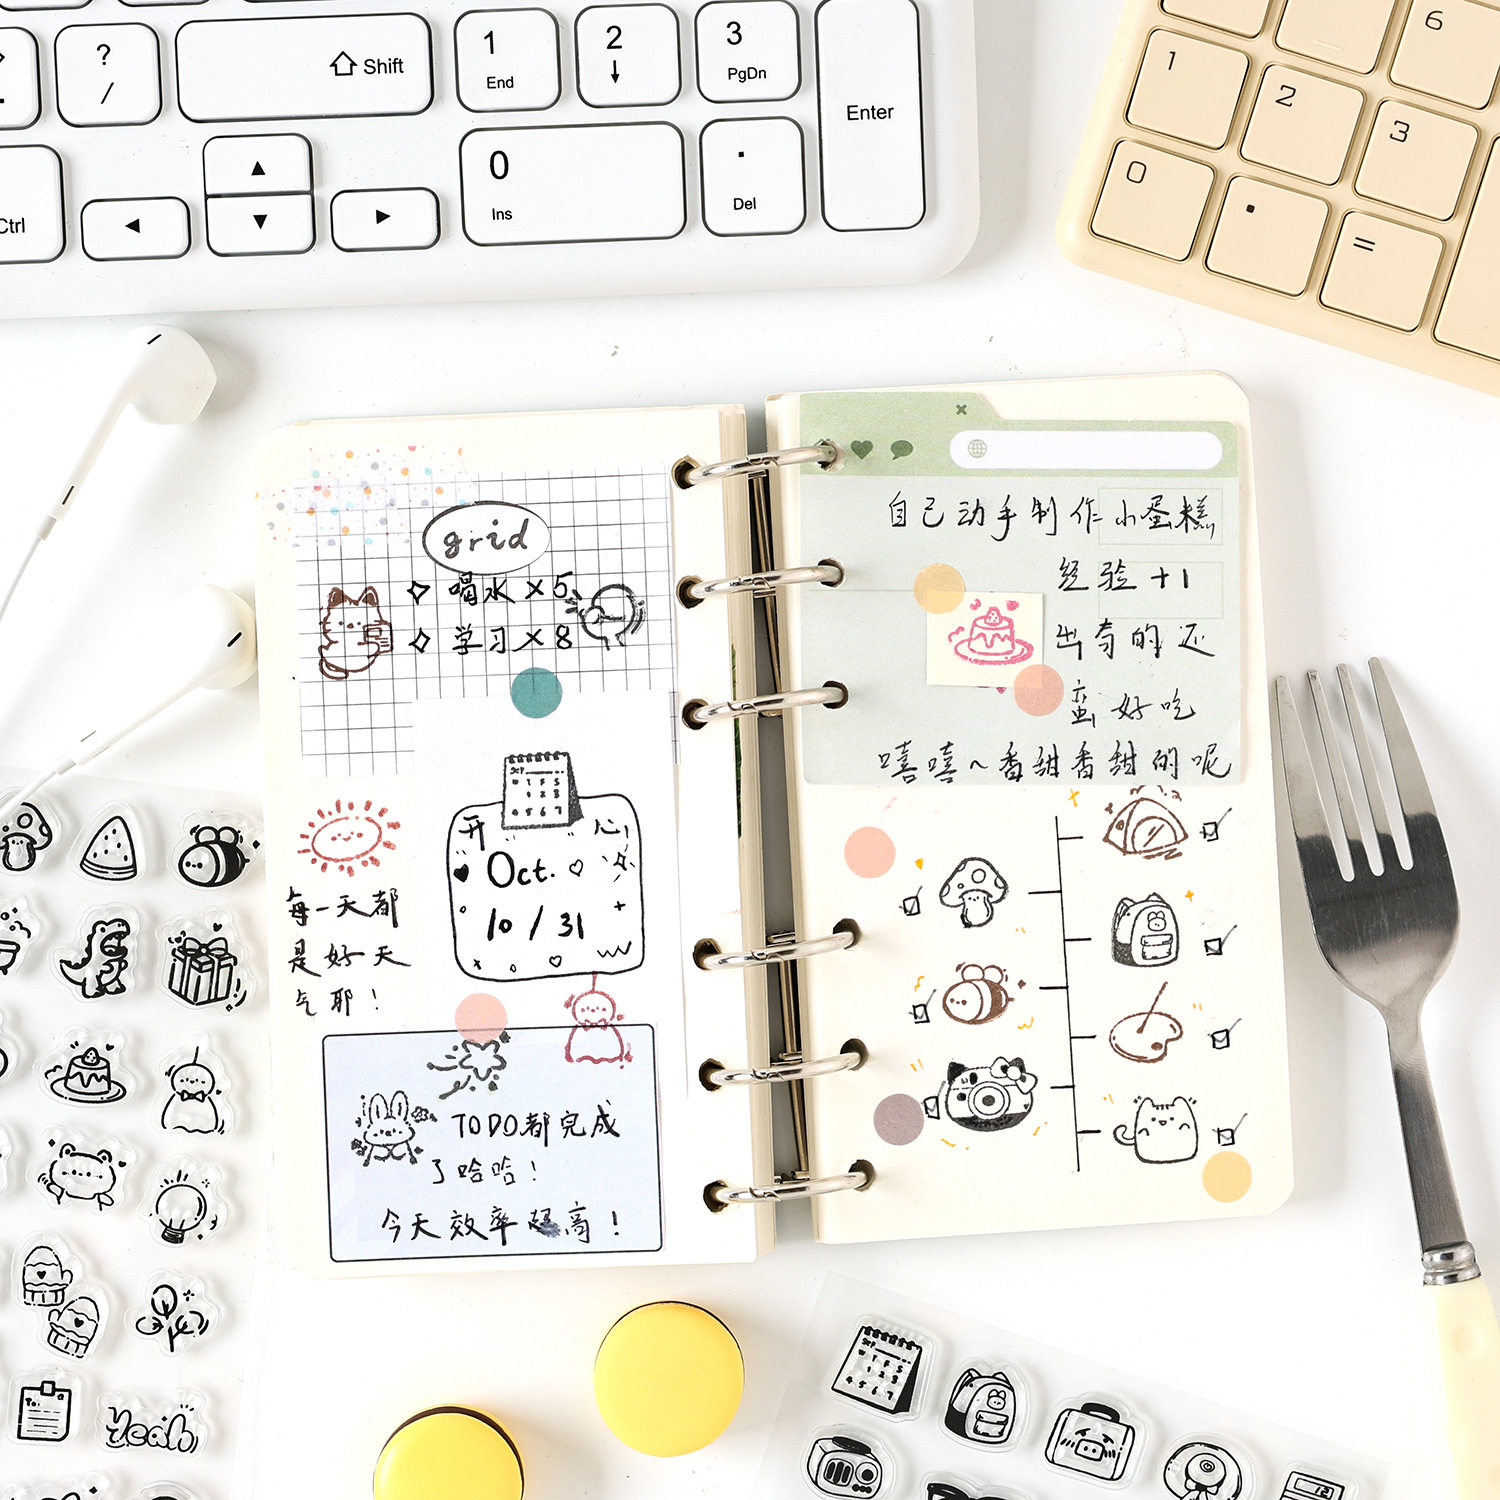 ? 
/
⇧ Shift
1
End
2
↓
3
PgDn
Enter
0
Ins
.
Del
Ctrl
▲
◀ ▼ ▶
6
1
2
3
0
.
=
grid
喝水×5
学习×8
Sep
W T F S
1 2 3
4 5 6 7
开心
Oct.
10/31
每一天都
是好天
气耶!
TODO都完成
了哈哈!
今天效率超高!
自己动手制作小蛋糕
经验+1
出奇的还
蛮好吃
嘻嘻~香甜香甜的呢
To:
Yeah
Sep
W T F S
1 2 3
4 5 6 7
12